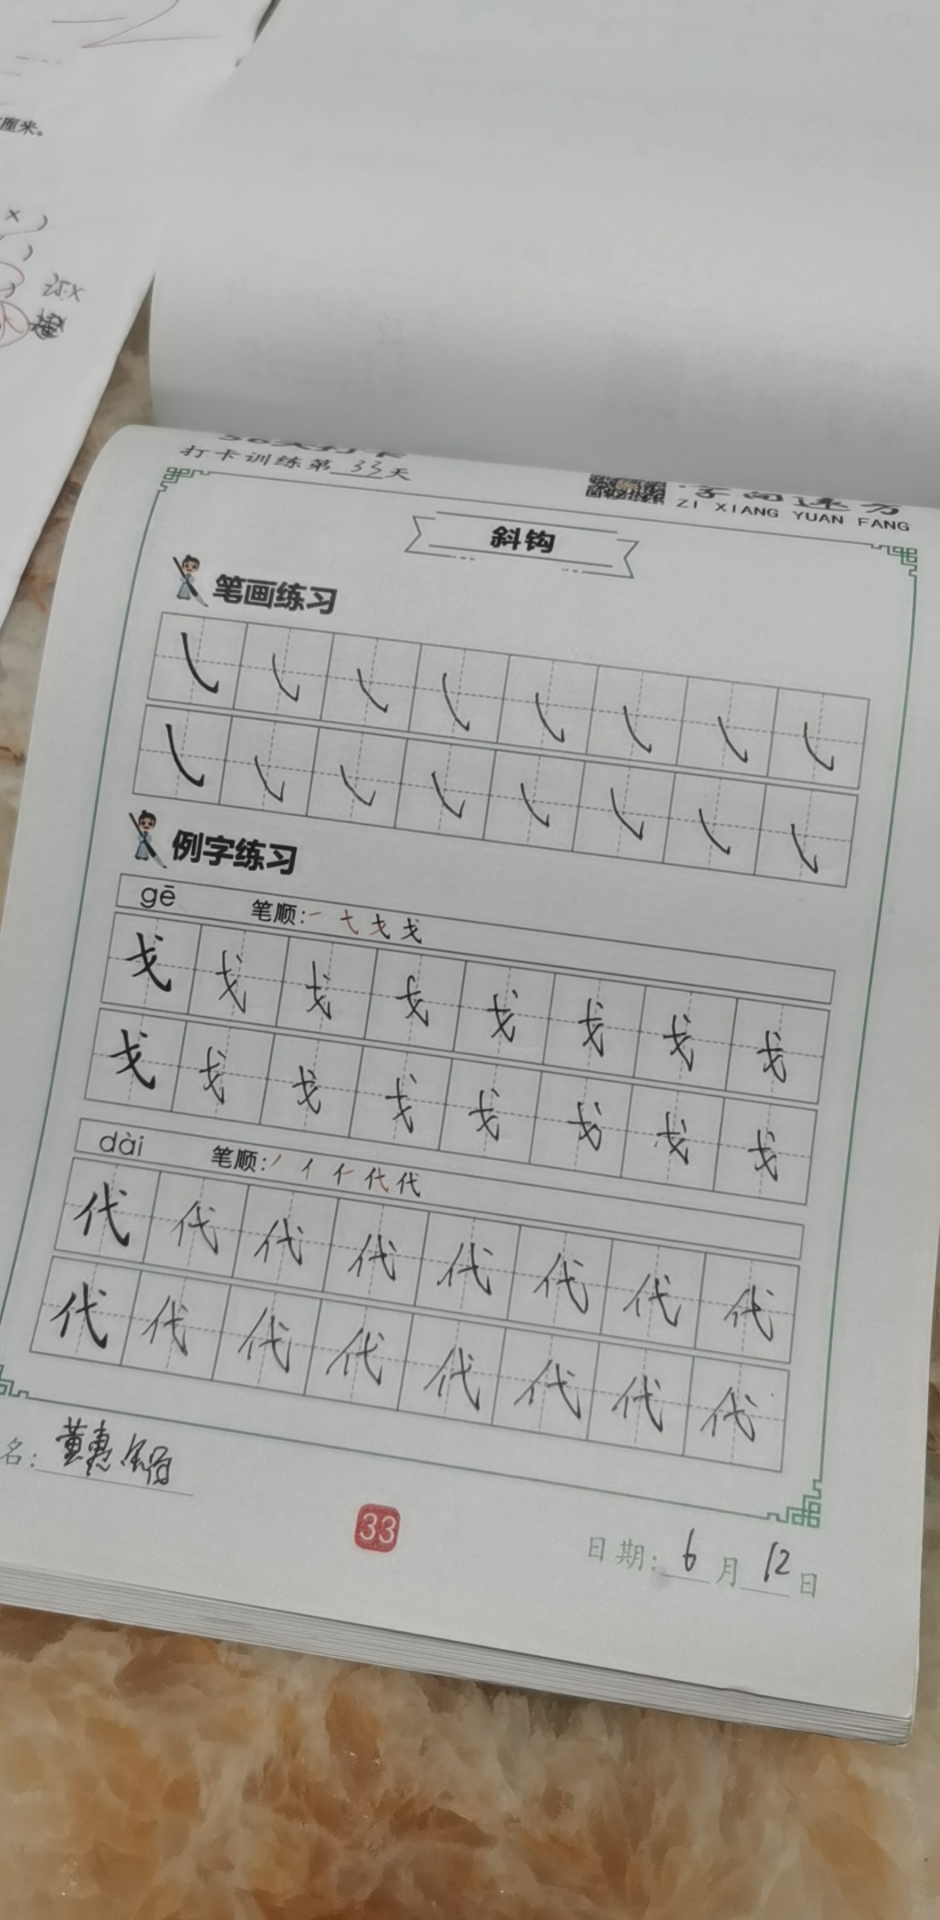 厘米。
打卡训练第33天
字向速方
ZI XIANG YUAN FANG
斜钩
笔画练习
例字练习
gē 笔顺:
戈 戈 戈 戈 戈 戈 戈 戈
戈 戈 戈 戈 戈 戈 戈 戈
dài 笔顺: 丿 亻 仁 代 代
代 代 代 代 代 代 代 代
代 代 代 代 代 代 代 代
名: 董惠
33
日期: 6月12日